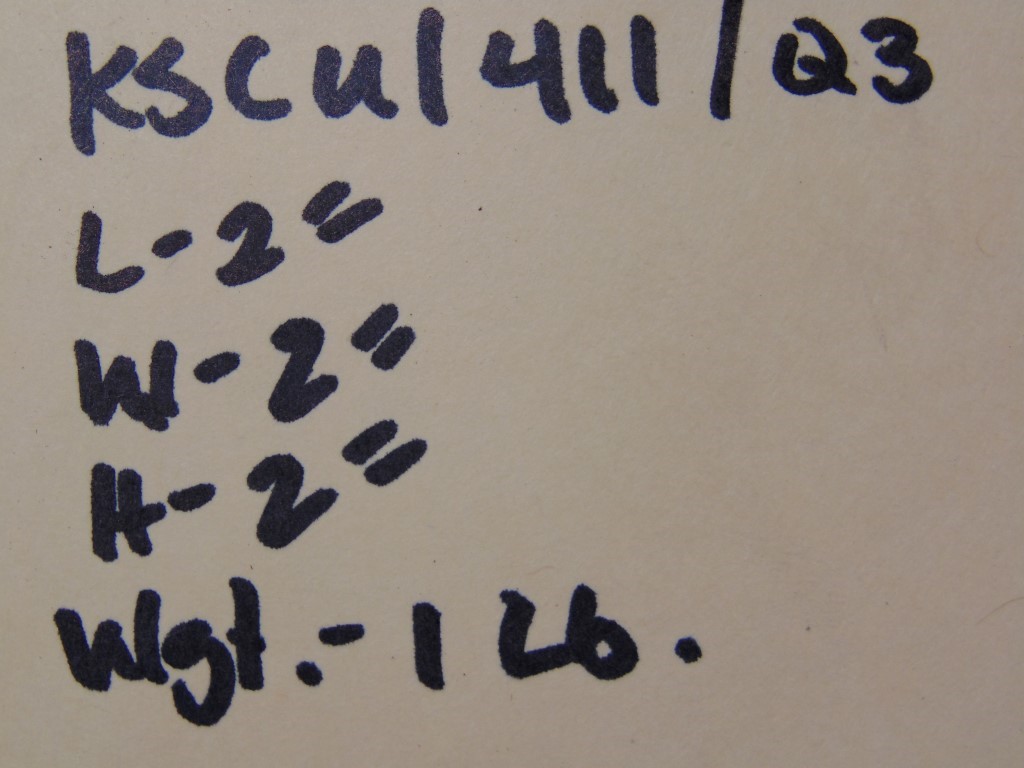 KSCU1411/Q3
L-2"
W-2"
H-2"
Wgt.-1 Lb.